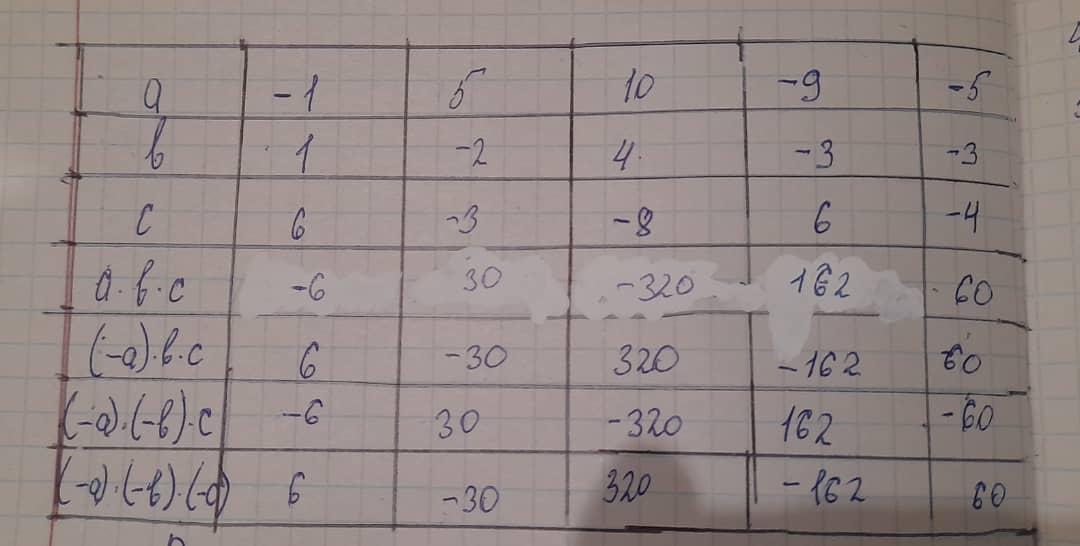 а -1 5 10 -9 -5
в 1 -2 4 -3 -3
с 6 -3 -8 6 -4
а·в·с -6 30 -320 162 60
(-а)·в·с 6 -30 320 -162 60
(-а)·(-в)·с -6 30 -320 162 -60
(-а)·(-в)·(-с) 6 -30 320 -162 60